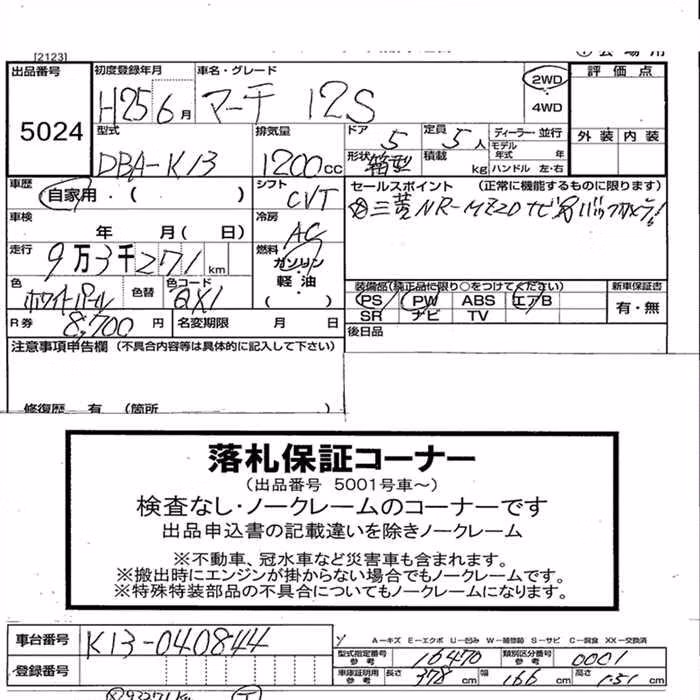 [2123]
出品番号 5024
初度登録年月 H25 6月
車名・グレード マーチ 12S
2WD
4WD
評価点
外装 内装
型式 DBA-K13
排気量 1200cc
ドア 5
定員 5人
形状 箱型
積載 kg
ディーラー・並行
モデル年式 年
ハンドル 左・右
車歴 自家用・( )
シフト CVT
セールスポイント (正常に機能するものに限ります)
三菱 NR-MZ20
車検 年 月(日)
冷房 AC
走行 9万3千271km
燃料 ガソリン・軽油・( )
色 ホワイトパール
色替
色コード QX1
装備品(純正品に限り○をつけてください)
PS PW ABS エアB
SR ナビ TV
新車保証書
有・無
R券 8,700円
名変期限 月 日
後日品
注意事項申告欄 (不具合内容等は具体的に記入して下さい)
修復歴 有 (箇所 )
落札保証コーナー
(出品番号 5001号車~)
検査なし・ノークレームのコーナーです
出品申込書の記載違いを除きノークレーム
※不動車、冠水車など災害車も含まれます。
※搬出時にエンジンが掛からない場合でもノークレームです。
※特殊特装部品の不具合についてもノークレームになります。
車台番号 K13-040844
A-キズ E-エクボ U-凹み W-補修跡 S-サビ C-腐食 XX-交換済
型式指定番号 参考 16470
類別区分番号 参考 0001
登録番号
車庫証明用 参考 長さ 378cm 幅 166cm 高さ 151cm